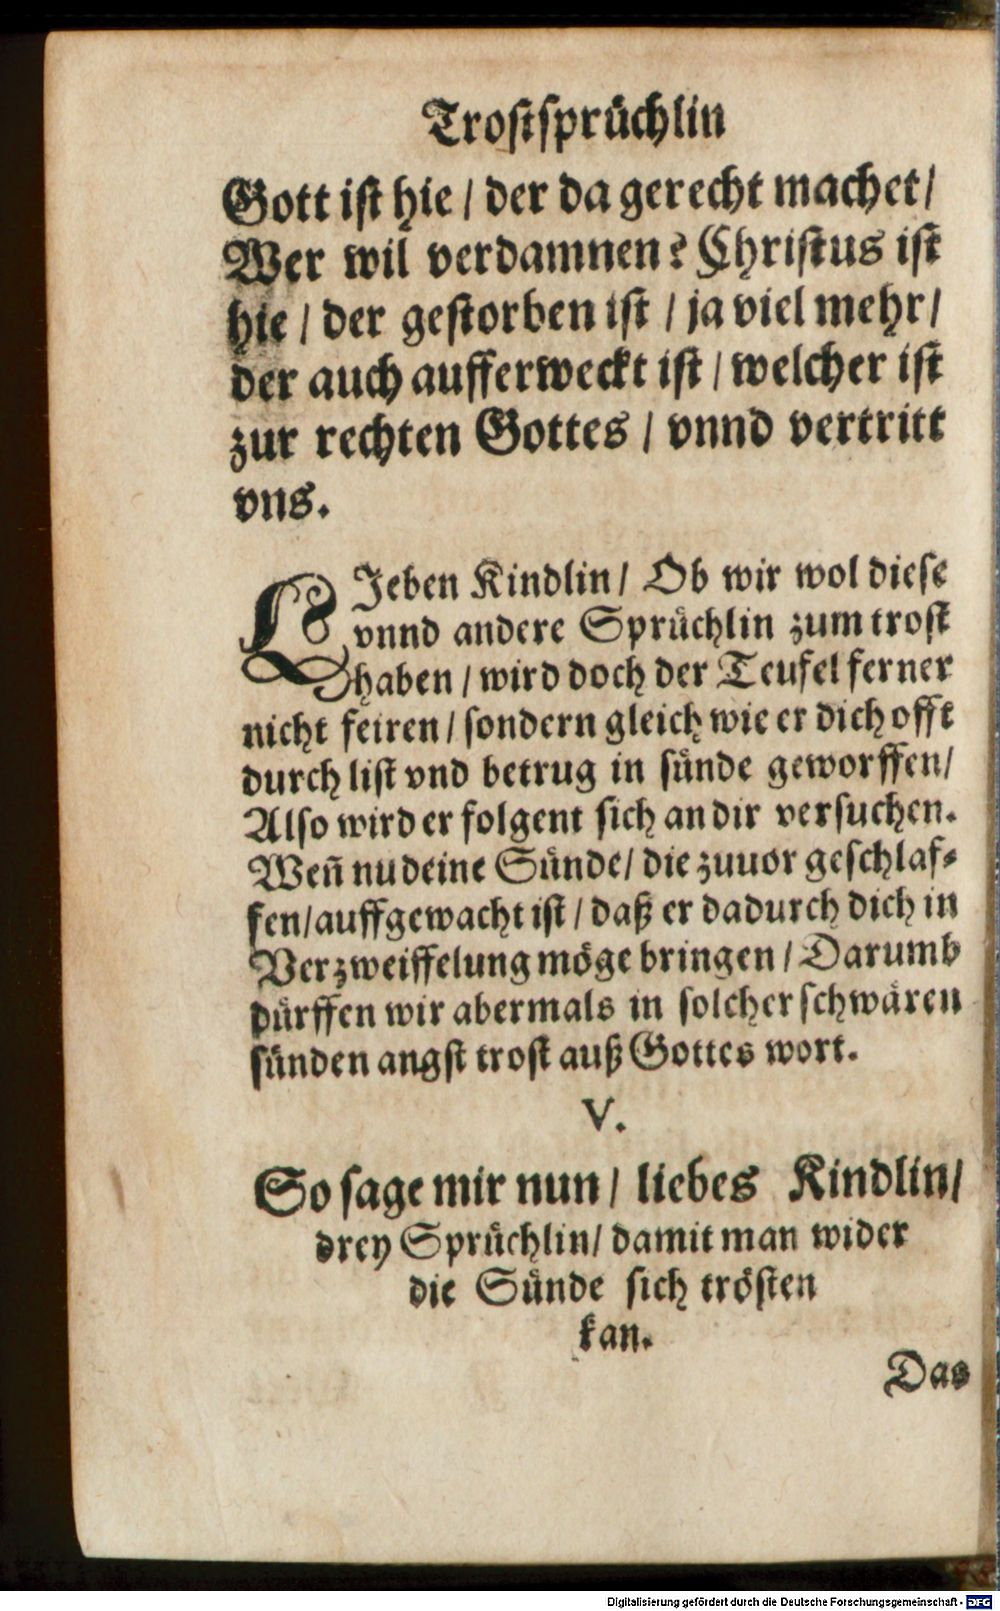 Trostsprüchlin
Gott ist hie / der da gerecht machet /
Wer wil verdamnen? Christus ist
hie / der gestorben ist / ja viel mehr /
der auch aufferweckt ist / welcher ist
zur rechten Gottes / vnnd vertritt
vns.
LJeben Kindlin / Ob wir wol diese
vnnd andere Sprüchlin zum trost
haben / wird doch der Teufel ferner
nicht feiren / sondern gleich wie er dich offt
durch list vnd betrug in sünde geworffen /
Also wird er folgent sich an dir versuchen.
Weñ nu deine Sünde / die zuuor geschlaf⸗
fen / auffgewacht ist / daß er dadurch dich in
Verzweiffelung möge bringen / Darumb
dürffen wir abermals in solcher schwären
sünden angst trost auß Gottes wort.
V.
So sage mir nun / liebes Kindlin /
drey Sprüchlin / damit man wider
die Sünde sich trösten
kan.
Das
Digitalisierung gefördert durch die Deutsche Forschungsgemeinschaft - DFG